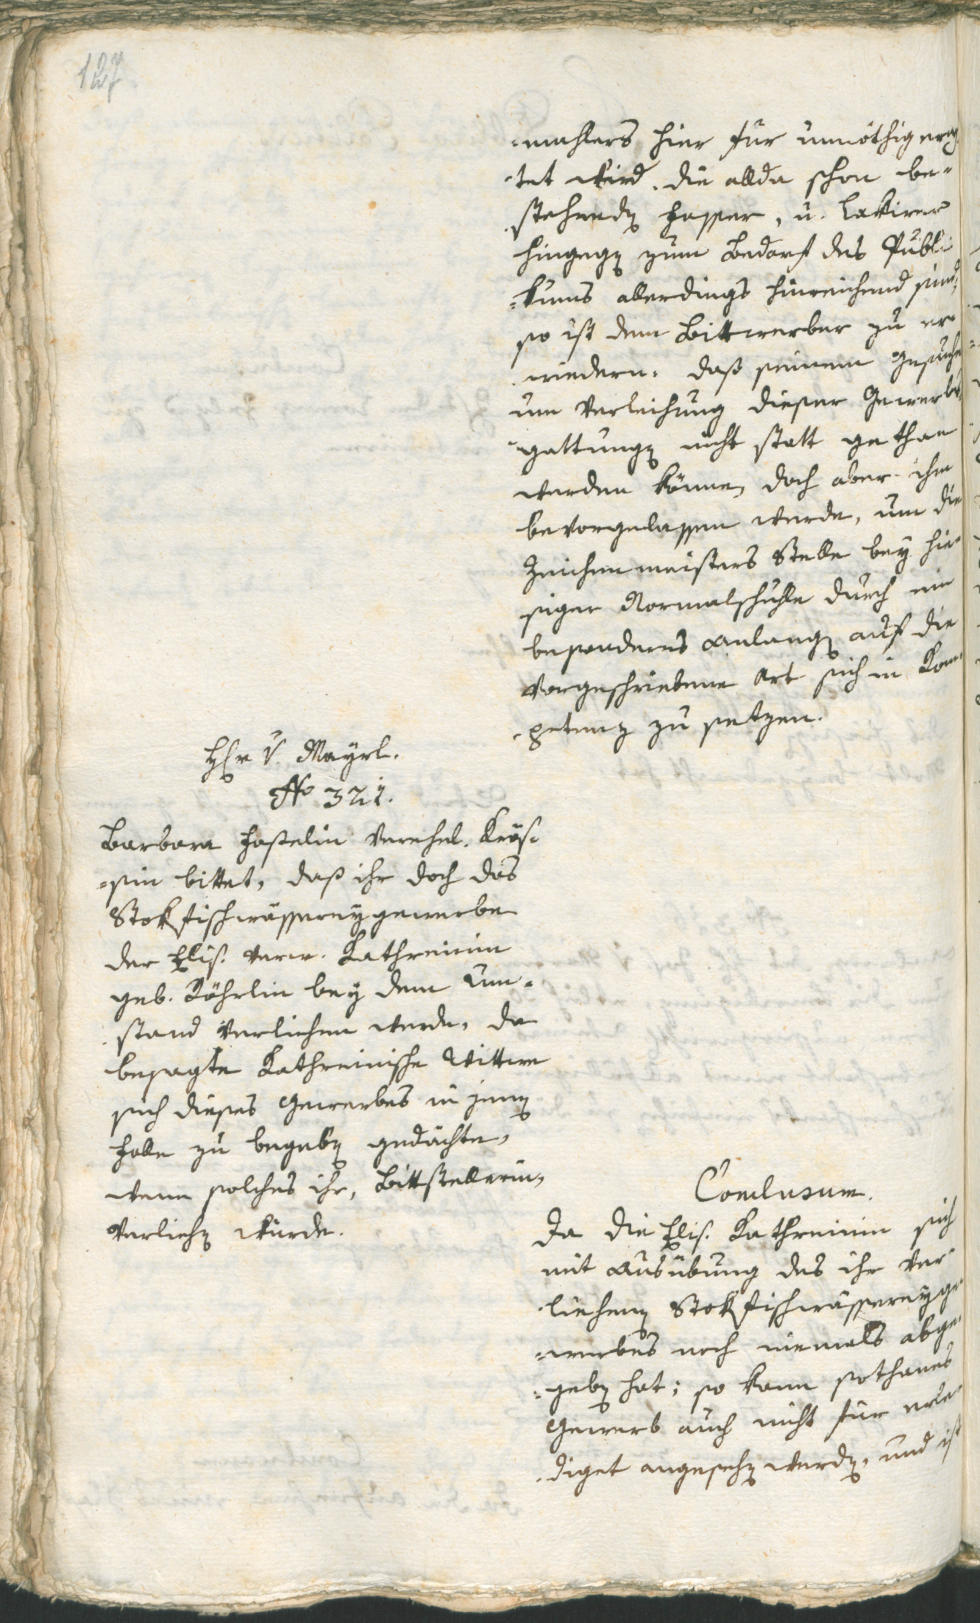 127
-mahlers hier für unnöthig erach
-tet wird. die allda schon be-
stehendẽ Fasser, u. Lakirer
hingegẽ zum Bedarf des Publi
-kums allerdings hinreichend sind,
so ist dem Bittwerber zu er-
wiedern. daß seinem Gesuche
um Verleihung dieser Gewerbs
gattungẽ nicht statt gethan
werden könne, doch aber ihm
bevorgelassen werde, um die
Zeichenmeisters Stelle bey hie-
siger Normalschuhle durch ein
besonderes Anlangẽ auf die
vorgeschriebene Art sich in Kom-
petenz zu setzen.
H. v. Mayrl.
No 321.
Barbara Haßelin verehel.
-sin bittet, daß ihr doch das
Stokfischwässereygewerbe
der Elis. verw. Kathreinin
geb. Röhrlin bey dem Um-
stand verliehen werde, da
besagte Kathreinische Wittwe
sich dieses Gewerbes in jenẽ
Falle zu begebẽ gedächte,
wenn solches ihr, Bittstellerin,
verliehẽ würde.
Conclusum.
Da die Elis. Kathreinin sich
mit Ausübung des ihr ver-
liehenẽ Stokfischwässereyge-
-werbes noch niemals abge-
-gebẽ hat; so kann sothanes
Gewerb auch nicht für erle-
diget angesehẽ werdẽ, und ist